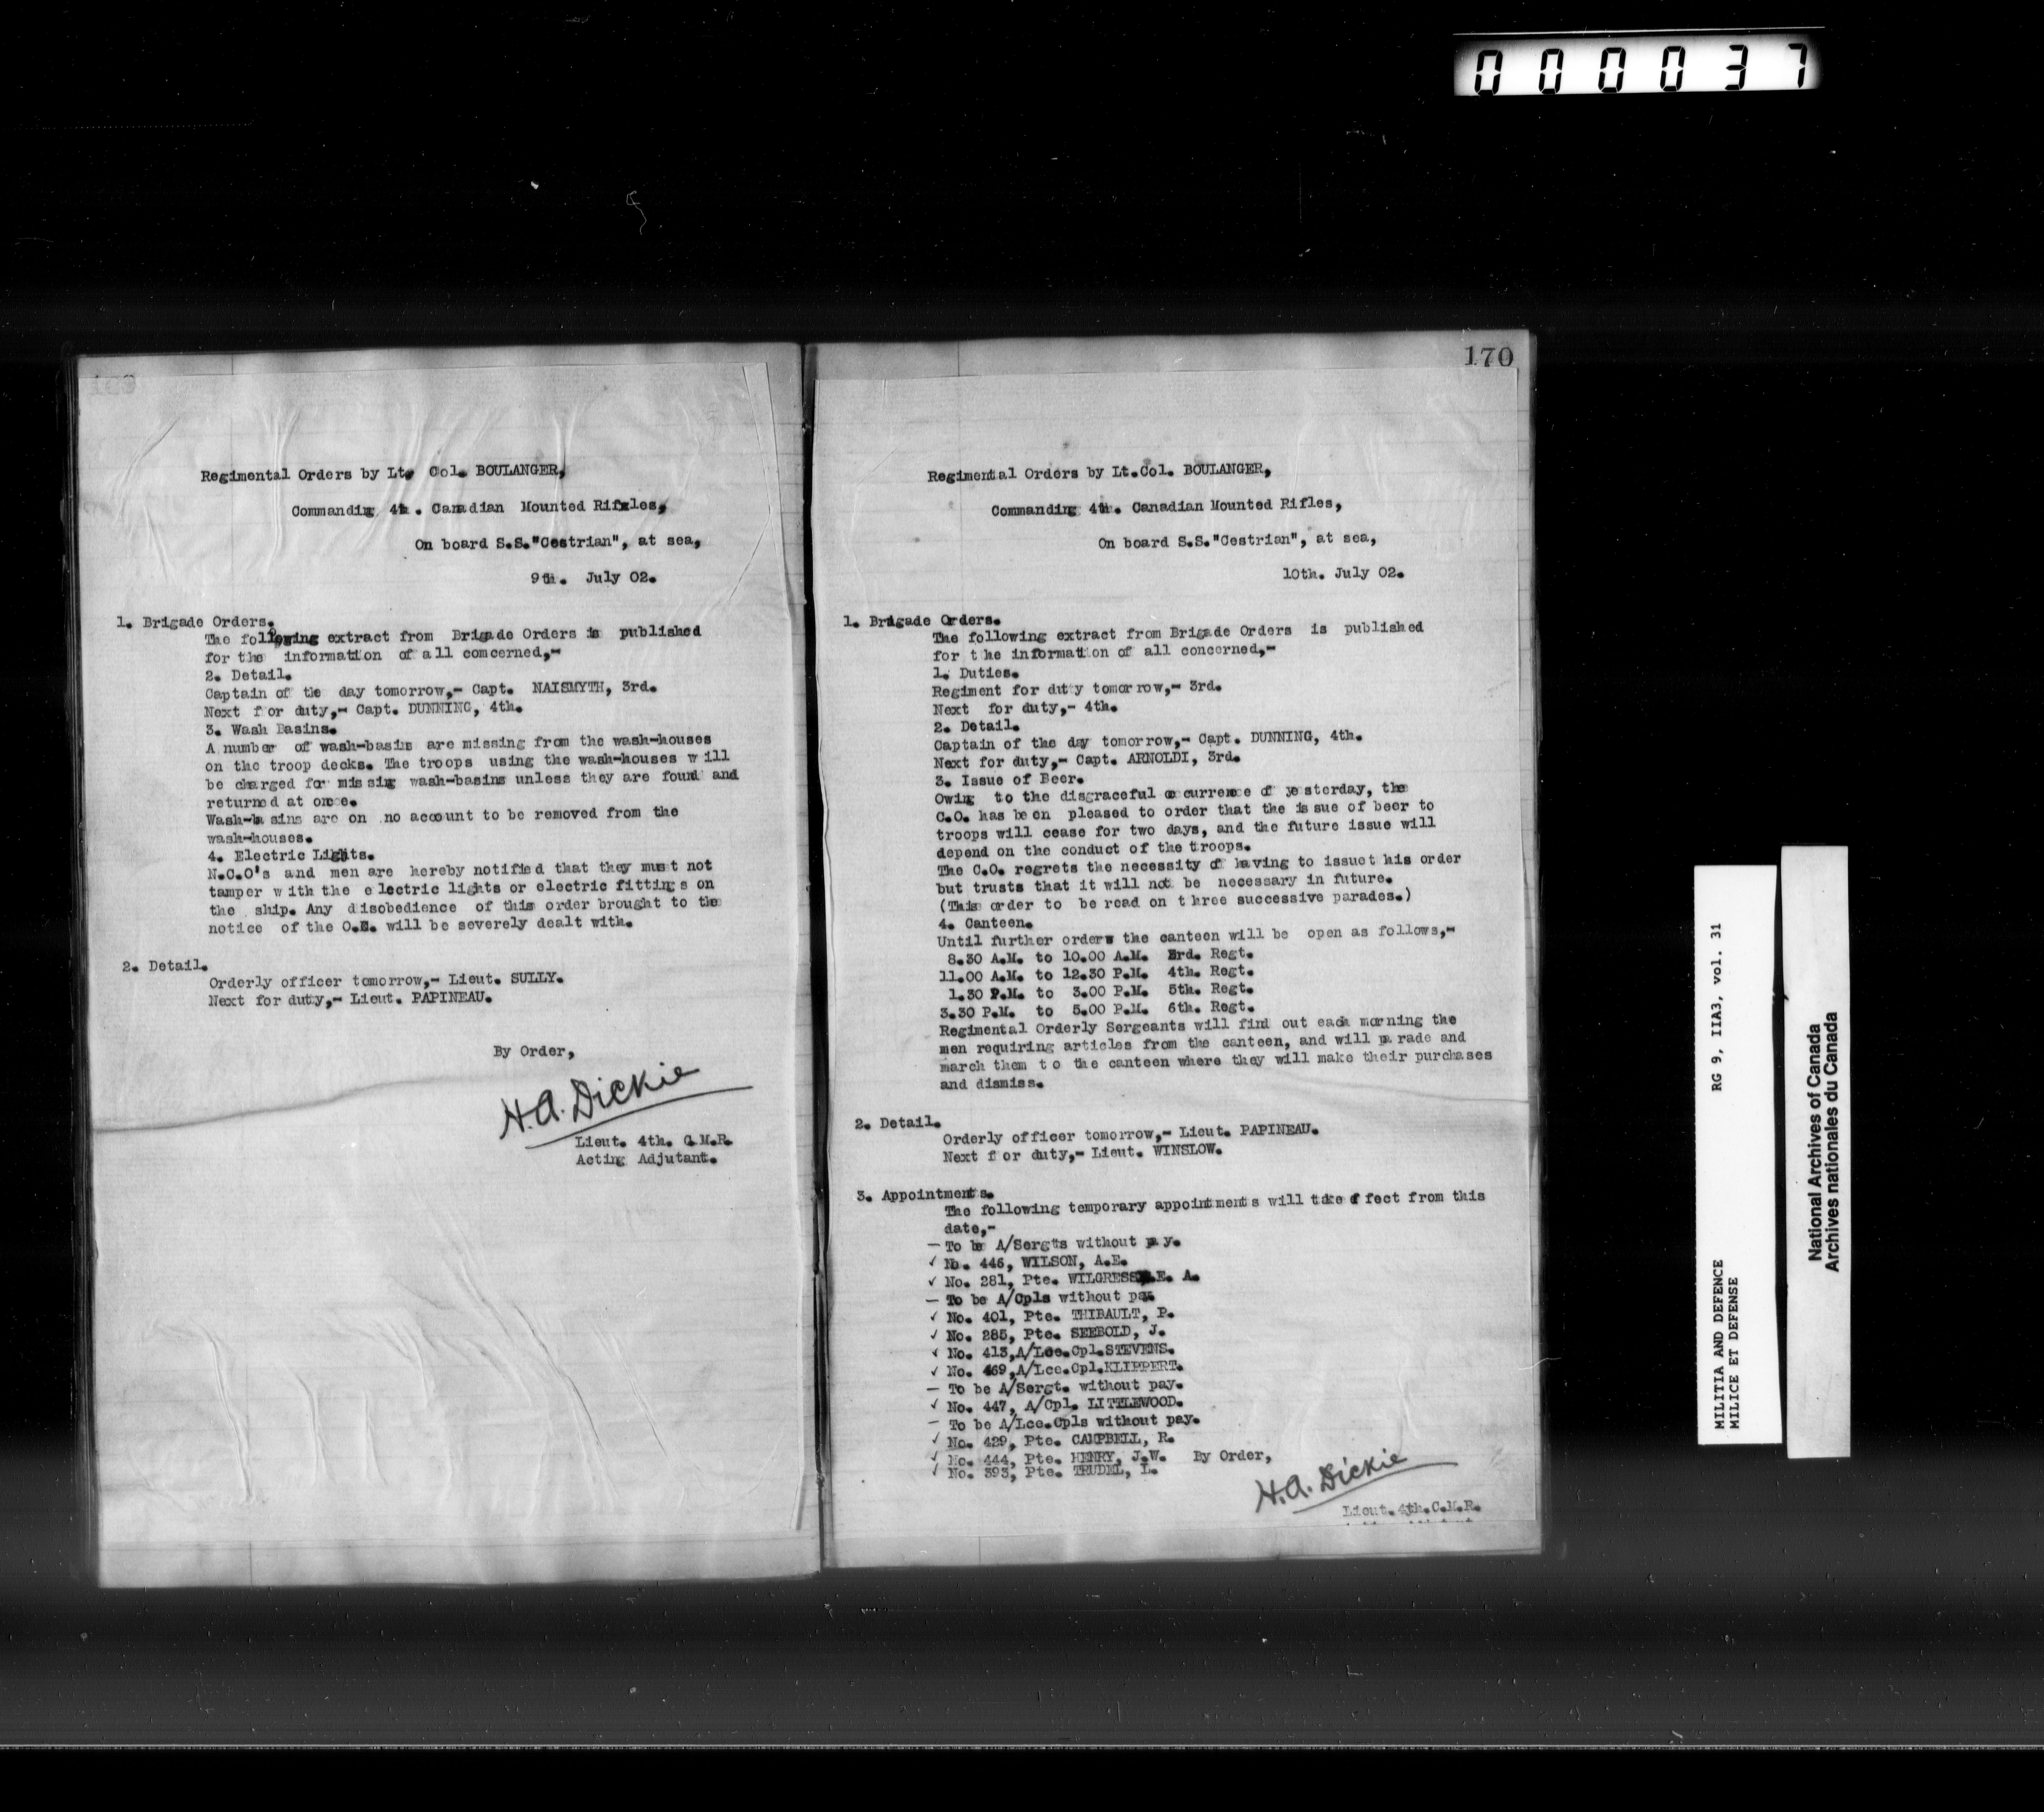 000037
170
Regimental Orders by Lt. Col. BOULANGER,
Commanding 4th. Canadian Mounted Rifles,
On board S.S."Cestrian", at sea,
9th. July 02.
1. Brigade Orders.
The following extract from Brigade Orders is published
for the information of all concerned,-
2. Detail.
Captain of the day tomorrow,- Capt. NAISMYTH, 3rd.
Next for duty,- Capt. DUNNING, 4th.
3. Wash Basins.
A number of wash-basins are missing from the wash-houses
on the troop decks. The troops using the wash-houses will
be charged for missing wash-basins unless they are found and
returned at once.
Wash-basins are on no account to be removed from the
wash-houses.
4. Electric Lights.
N.C.O's and men are hereby notified that they must not
tamper with the electric lights or electric fittings on
the ship. Any disobedience of this order brought to the
notice of the will be severely dealt with.
2. Detail.
Orderly officer tomorrow,- Lieut. SULLY.
Next for duty,- Lieut. PAPINEAU.
By Order,
H.A. Dickie
Lieut. 4th. C.M.R.
Acting Adjutant.
Regimental Orders by Lt.Col. BOULANGER,
Commanding 4th. Canadian Mounted Rifles,
On board S.S."Cestrian", at sea,
10th. July 02.
1. Brigade Orders.
The following extract from Brigade Orders is published
for the information of all concerned,-
1. Duties.
Regiment for duty tomorrow,- 3rd.
Next for duty,- 4th.
2. Detail.
Captain of the day tomorrow,- Capt. DUNNING, 4th.
Next for duty,- Capt. ARNOLDI, 3rd.
3. Issue of Beer.
Owing to the disgraceful occurrence of yesterday, the
C.O. has been pleased to order that the issue of beer to
troops will cease for two days, and the future issue will
depend on the conduct of the troops.
The C.O. regrets the necessity of having to issue this order
but trusts that it will not be necessary in future.
(This order to be read on three successive parades.)
4. Canteen.
Until further orders the canteen will be open as follows,-
8.30 A.M. to 10.00 A.M. 3rd. Regt.
11.00 A.M. to 12.30 P.M. 4th. Regt.
1.30 P.M. to 3.00 P.M. 5th. Regt.
3.30 P.M. to 5.00 P.M. 6th. Regt.
Regimental Orderly Sergeants will find out each morning the
men requiring articles from the canteen, and will parade and
march them to the canteen where they will make their purchases
and dismiss.
2. Detail.
Orderly officer tomorrow,- Lieut. PAPINEAU.
Next for duty,- Lieut. WINSLOW.
3. Appointments.
The following temporary appointments will take effect from this
date,-
— To be A/Sergts without pay.
✓ No. 446, WILSON, A.E.
✓ No. 281, Pte. WILGRESS, E. A.
— To be A/Cpls without pay.
✓ No. 401, Pte. THIBAULT, P.
✓ No. 285, Pte. SEEBOLD, J.
✓ No. 413,A/Lce.Cpl.STEVENS.
✓ No. 469,A/Lce.Cpl.KLIPPERT.
— To be A/Sergt. without pay.
✓ No. 447, A/Cpl. LITTLEWOOD.
— To be A/Lce.Cpls without pay.
✓ No. 429, Pte. CAMPBELL, R.
✓ No. 444, Pte. HENRY, J.W. By Order,
✓ No. 393, Pte. TRUDEL, L.
H.A. Dickie
Lieut.4th.C.M.R.
MILITIA AND DEFENCE RG 9, IIA3, vol. 31
MILICE ET DEFENSE
National Archives of Canada
Archives nationales du Canada